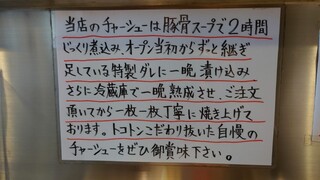 当店のチャーシューは豚骨スープで2時間
じっくり煮込み、オープン当初からずっと継ぎ
足している特製ダレに一晩漬け込み
さらに冷蔵庫で一晩熟成させ、ご注文
頂いてから一枚一枚丁寧に焼き上げて
おります。トコトンこだわり抜いた自慢の
チャーシューをぜひ御賞味下さい。